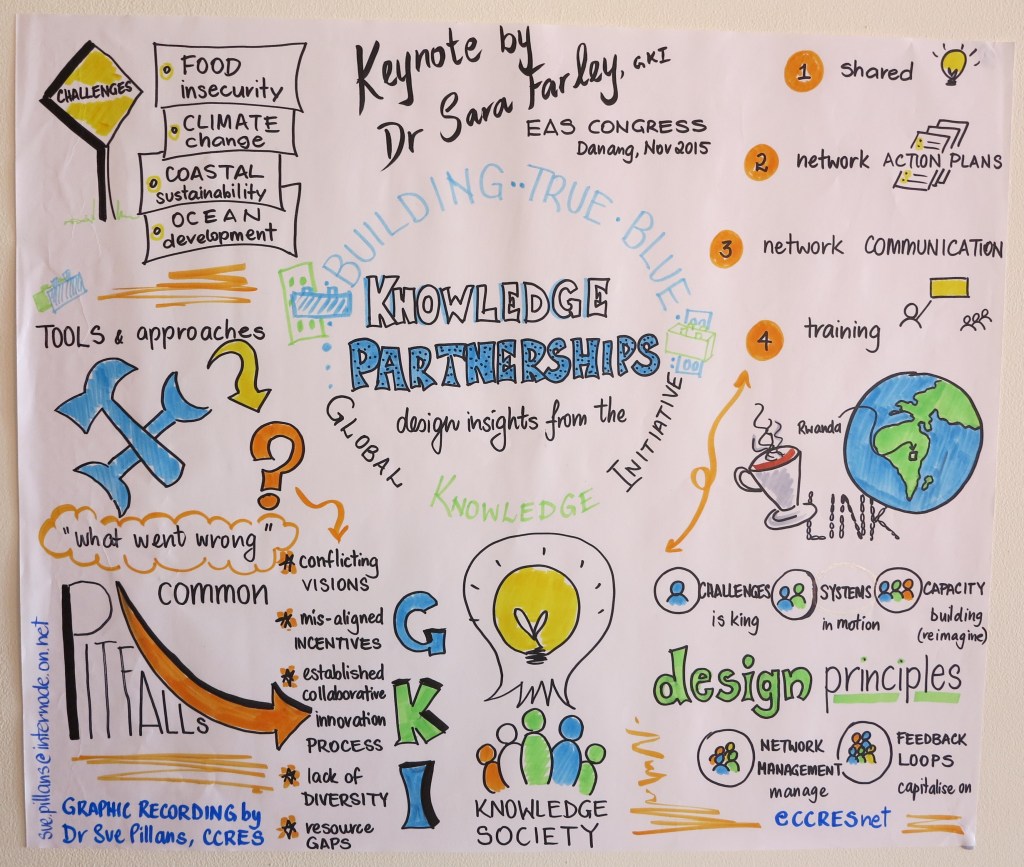 CHALLENGES
FOOD
insecurity
CLIMATE
change
COASTAL
sustainability
OCEAN
development
Keynote by
Dr Sara Farley, GKI
EAS CONGRESS
Danang, Nov 2015
1 shared
2 network ACTION PLANS
3 network COMMUNICATION
4 training
BUILDING··TRUE·BLUE·
KNOWLEDGE
PARTNERSHIPS
design insights from the
GLOBAL
KNOWLEDGE
INITIATIVE
TOOLS & approaches
?
"what went wrong"
common
PITFALLS
* conflicting
VISIONS
* mis-aligned
INCENTIVES
* established
collaborative
innovation
PROCESS
* lack of
DIVERSITY
* resource
GAPS
G
K
I
KNOWLEDGE
SOCIETY
Rwanda
LINK
CHALLENGES
is king
SYSTEMS
in motion
CAPACITY
building
(reimagine)
design principles
NETWORK
MANAGEMENT
manage
FEEDBACK
LOOPS
capitalise on
eCCRESnet
suepillans@internode.on.net
GRAPHIC RECORDING by
Dr Sue Pillans, CCRES